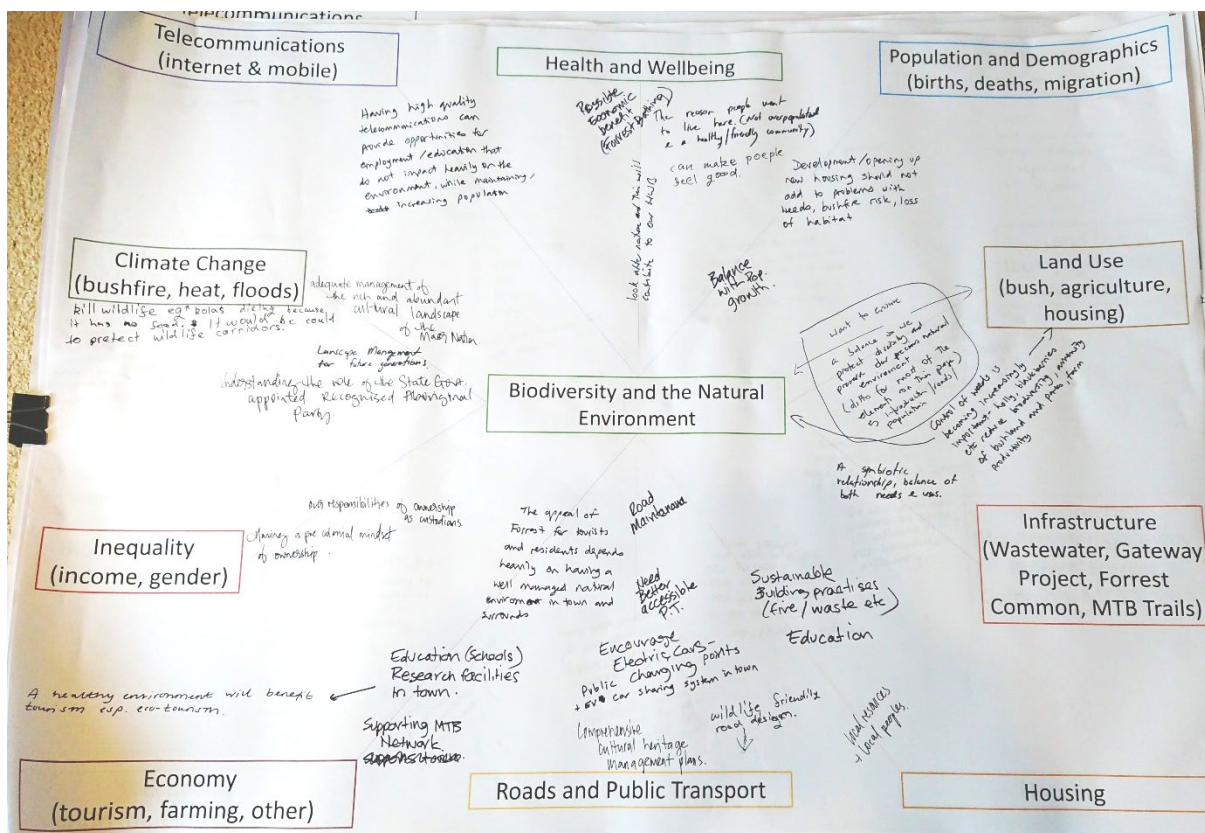 Telecommunications
Telecommunications
(internet & mobile)
Health and Wellbeing
Population and Demographics
(births, deaths, migration)
Having high quality
telecommunications can
provide opportunities for
employment / education that
do not impact heavily on the
environment, while maintaining /
increasing population
Possible
Economic
benefit
(Forrest Bathing)
The reason people want
to live here. (Not overpopulated
& a healthy/friendly community)
can make poeple
feel good.
Development / opening up
new housing should not
add to problems with
weeds, bushfire risk, loss
of habitat
look after nature and this will
contribute to our HWB
Balance
with Pop.
growth.
Climate Change
(bushfire, heat, floods)
kill wildlife eg* kolas dieing because
it has no food. & It would be could
to pretect wildlife corridors.
adequate management of
the rich and abundant
cultural landscape
of the
Maar Nation.
Lanscape Mangement
for future generations
Understanding the role of the State Govt.
appointed Recognised Aboriginal
Party.
Biodiversity and the Natural
Environment
Land Use
(bush, agriculture,
housing)
want to ensure
a balance so we
protect diversity and
prevent our precious natural
environment
(ditto for most of the
elements on this page)
es infrastructure/roads/
population)
Control of weeds is
becoming increasingly
important - holly, blackberries
etc reduce biodiversity, amenity
of bushland and parks, farm
productivity
A symbiotic
relationship, balance of
both needs & uses.
Inequality
(income, gender)
our responsibilities of ownership
as custodians.
a pre colonial mindset
of ownership.
The appeal of
Forrest for tourists
and residents depends
heavily on having a
well managed natural
enviroment in town and
surrounds
Road
Maintenance
Need
Better
accessible
P.T.
Sustainable
Building practises
(fire / waste etc)
Education
Infrastructure
(Wastewater, Gateway
Project, Forrest
Common, MTB Trails)
Education (Schools)
Research facilities
in town.
A healthy environment will benefit
tourism esp. eco-tourism.
Encourage
Electric Cars -
Public charging points
+ car sharing system in town
Supporting MTB
Network
Comprehensive
cultural heritage
management plans.
wildlife friendily
road design.
local resources
+ local peoples.
Economy
(tourism, farming, other)
Roads and Public Transport
Housing